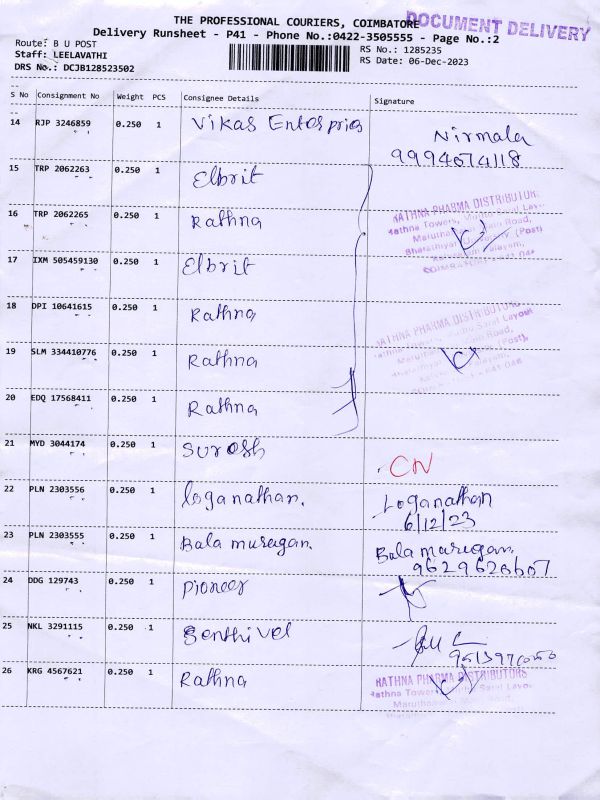 THE PROFESSIONAL COURIERS, COIMBATORE
DOCUMENT DELIVERY
Delivery Runsheet - P41 - Phone No.:0422-3505555 - Page No.:2
Route: B U POST
Staff: LEELAVATHI
DRS No.: DCJB128523502
RS No.: 1285235
RS Date: 06-Dec-2023
S No Consignment No Weight PCS Consignee Details Signature
14 RJP 3246859 0.250 1 Vikas Enterprios Nirmala
15 TRP 2062263 0.250 1 Elbrit
16 TRP 2062265 0.250 1 Rathna
RATHNA PHARMA DISTRIBUTORS
17 IXM 505459130 0.250 1 Elbrit
18 DPI 10641615 0.250 1 Rathna
RATHNA PHARMA DISTRIBUTORS
19 SLM 334410776 0.250 1 Rathna
20 EDQ 17568411 0.250 1 Rathna
21 MYD 3044174 0.250 1 Surosh CN
22 PLN 2303556 0.250 1 loganathan. Loganathan
6/12/23
23 PLN 2303555 0.250 1 Bala murugan. Bala murugan.
9629620607
24 DDG 129743 0.250 1 Pioneer
25 NKL 3291115 0.250 1 Senthivel
26 KRG 4567621 0.250 1 Rathna
RATHNA PHARMA DISTRIBUTORS